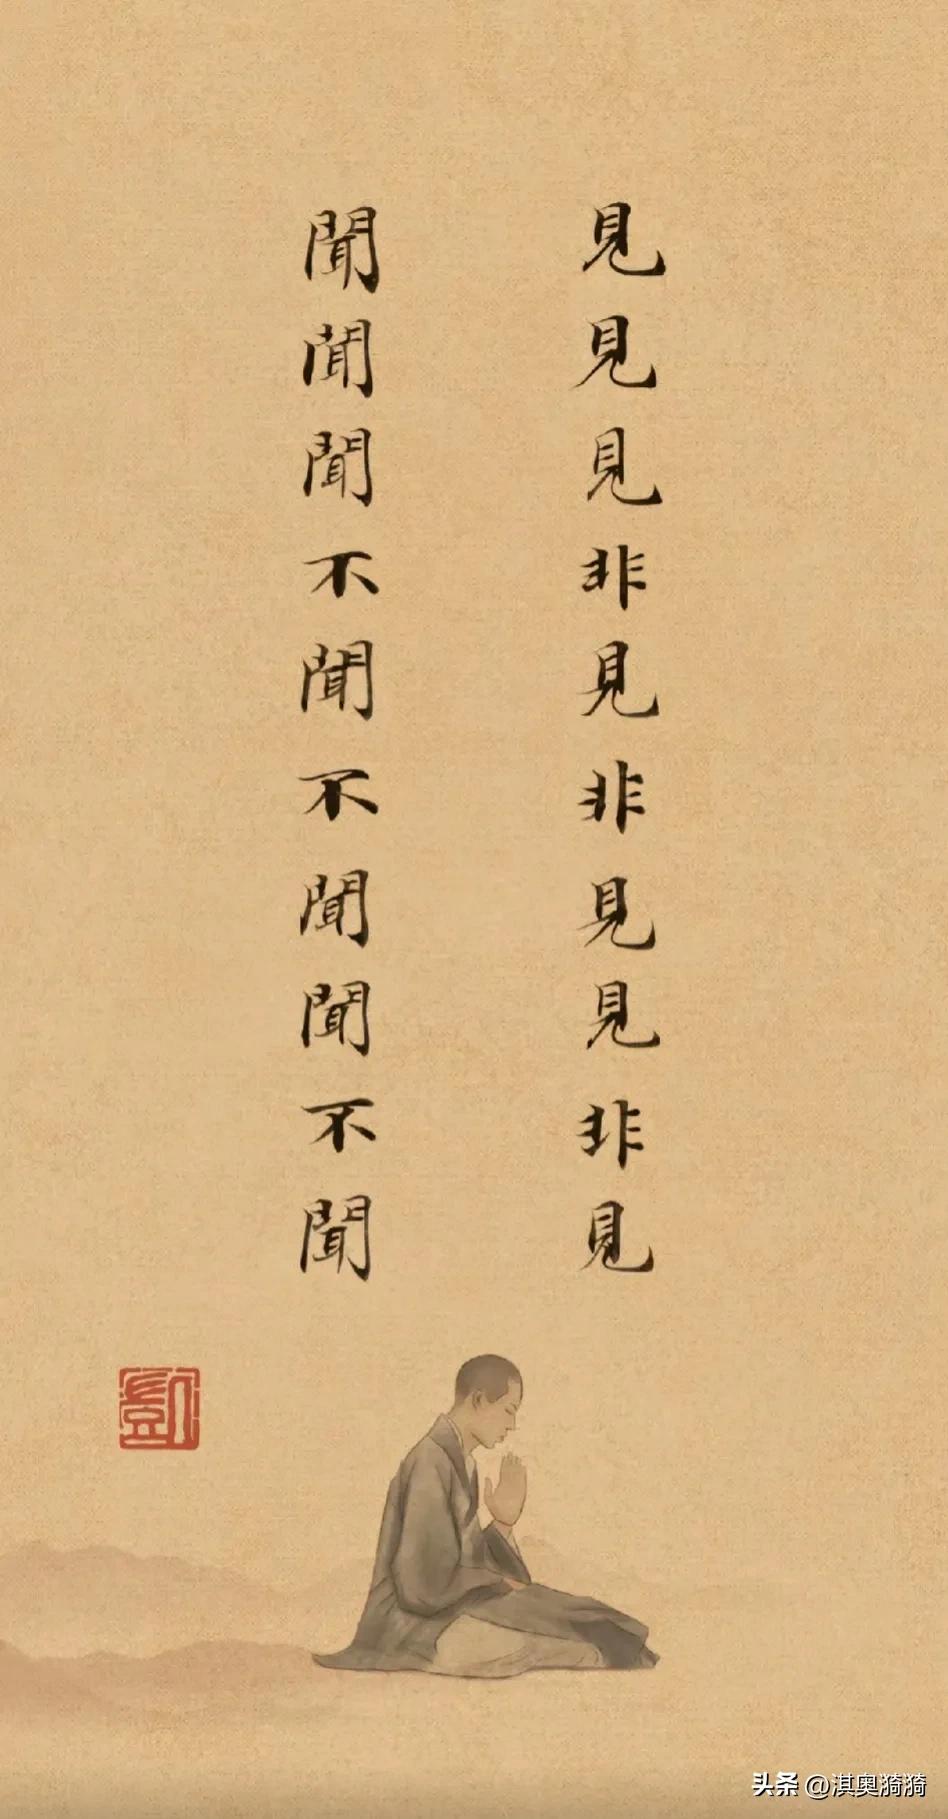 見見見非見非見見非見
聞聞聞不聞不聞聞不聞
头条 @淇奥漪漪